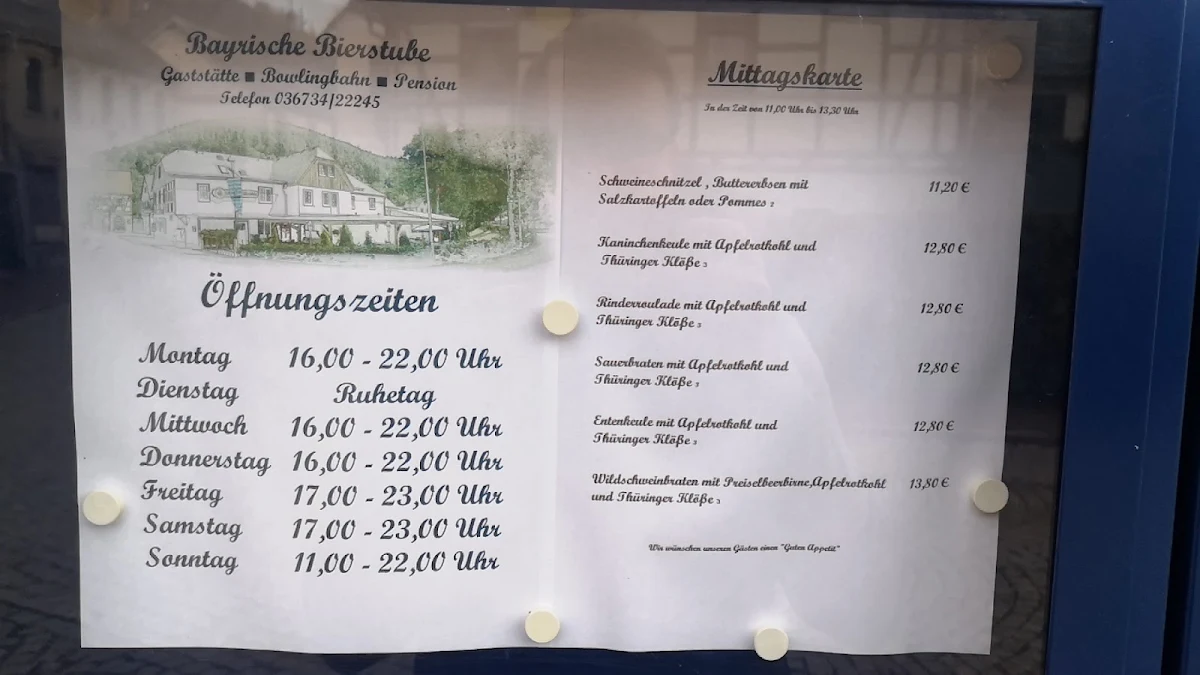 Bayrische Bierstube
Gaststätte ■ Bowlingbahn ■ Pension
Telefon 036734/22245
Öffnungszeiten
Montag 16,00 - 22,00 Uhr
Dienstag Ruhetag
Mittwoch 16,00 - 22,00 Uhr
Donnerstag 16,00 - 22,00 Uhr
Freitag 17,00 - 23,00 Uhr
Samstag 17,00 - 23,00 Uhr
Sonntag 11,00 - 22,00 Uhr
Mittagskarte
In der Zeit von 11,00 Uhr bis 13,30 Uhr
Schweineschnitzel , Buttererbsen mit 11,20 €
Salzkartoffeln oder Pommes 2
Kaninchenkeule mit Apfelrotkohl und 12,80 €
Thüringer Klöße 3
Rinderroulade mit Apfelrotkohl und 12,80 €
Thüringer Klöße 3
Sauerbraten mit Apfelrotkohl und 12,80 €
Thüringer Klöße 3
Entenkeule mit Apfelrotkohl und 12,80 €
Thüringer Klöße 3
Wildschweinbraten mit Preiselbeerbirne,Apfelrotkohl 13,80 €
und Thüringer Klöße 3
Wir wünschen unseren Gästen einen "Guten Appetit"